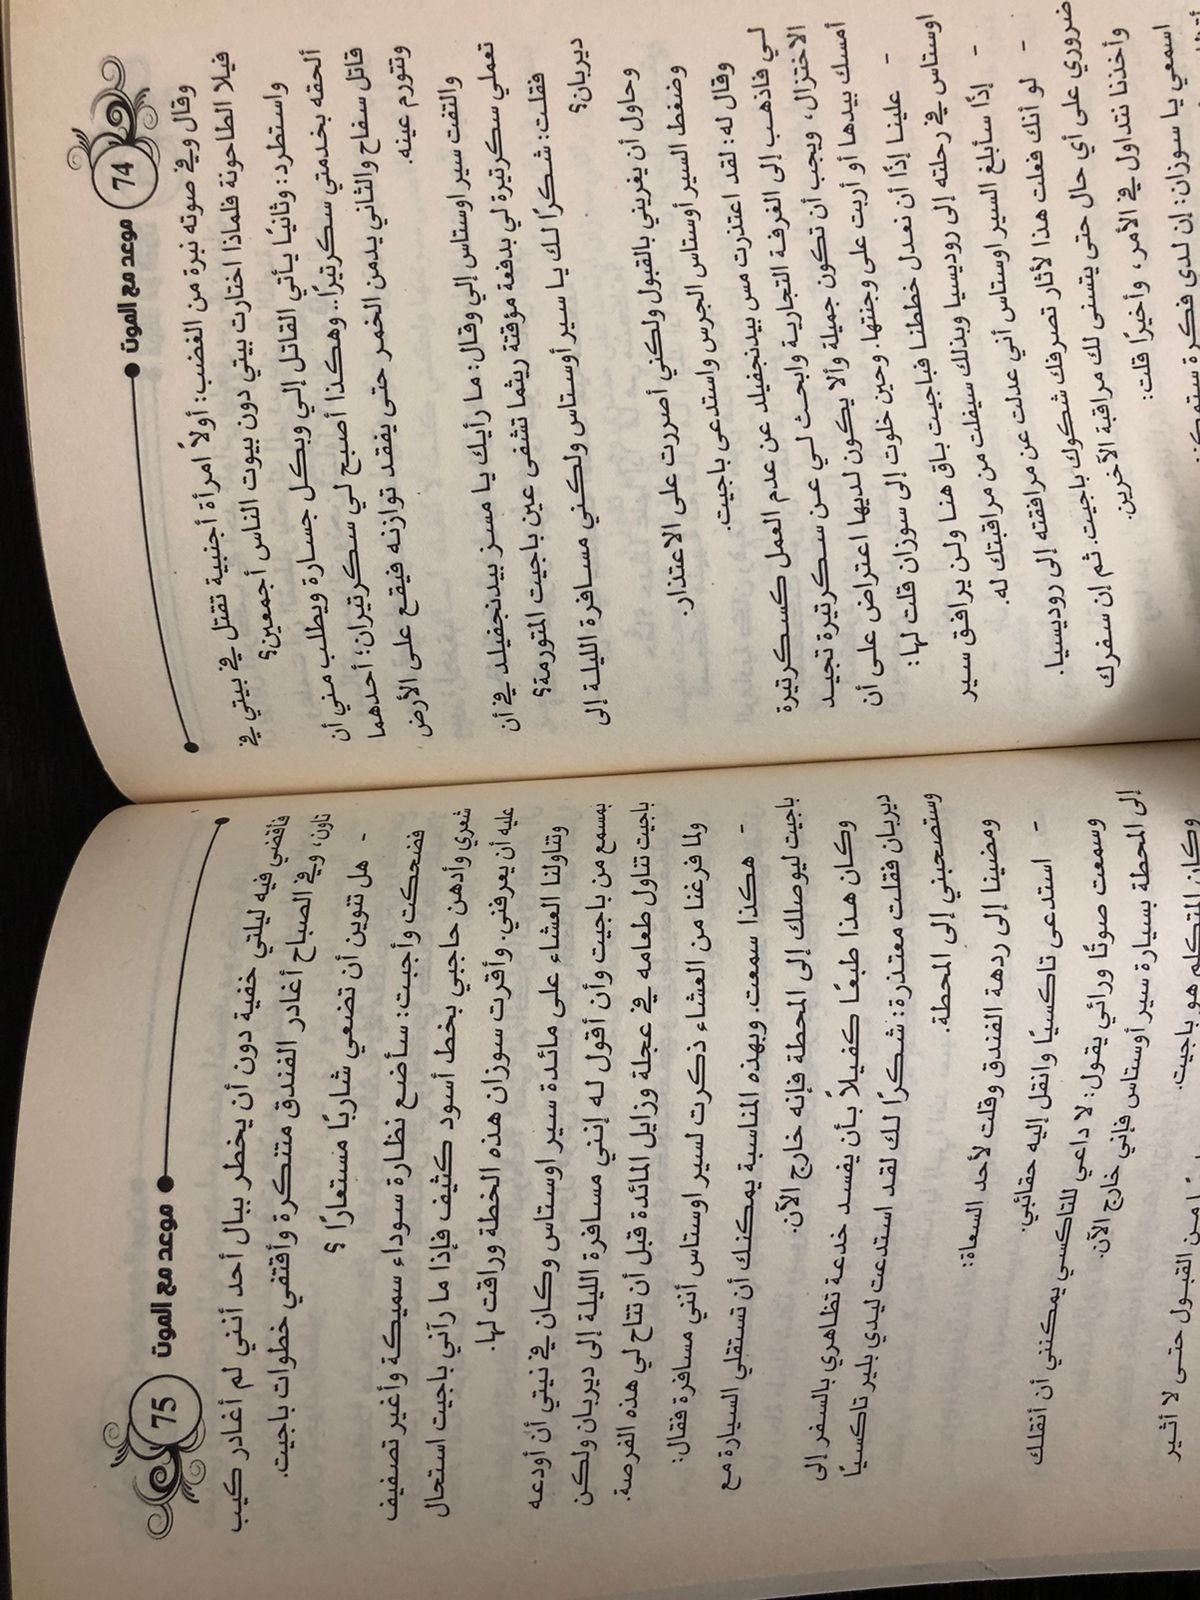 موعد مع الموت
74
وقال وفي صوته نبرة من الغضب: أولاً امرأة أجنبية تقتل في بيتي في
فيلا الطاحونة فلماذا اختارت بيتي دون بيوت الناس أجمعين؟
واستطرد: وثانيًا يأتي القاتل إلي وبكل جسارة ويطلب مني أن
ألحقه بخدمتي سكرتيرًا.. وهكذا أصبح لي سكرتيران؛ أحدهما
قاتل سفاح والثاني يدمن الخمر حتى يفقد توازنه فيقع على الأرض
وتتورم عينه.
والتفت سير اوستاس إلي وقال: ما رأيك يا مسز بيدنجفيلد في أن
تعملي سكرتيرة لي بدفعة مؤقتة ريثما تشفى عين باجيت المتورمة؟
فقلت: شكرًا لك يا سير أوستاس ولكني مسافرة الليلة إلى
ديربان؟
وحاول أن يغريني بالقبول ولكني أصررت على الاعتذار.
وضغط السير أوستاس الجرس واستدعى باجيت.
وقال له: لقد اعتذرت مس بيدنجفيلد عن عدم العمل كسكرتيرة
لي فاذهب إلى الغرفة التجارية وابحث لي عن سكرتيرة تجيد
الاختزال، ويجب أن تكون جميلة وألا يكون لديها اعتراض على أن
أمسك بيدها أو أربت على وجنتها. وحين خلوت إلى سوزان قلت لها:
- علينا إذًا أن نعدل خططنا فباجيت باق هنا ولن يرافق سير
اوستاس في رحلته إلى روديسيا وبذلك سيفلت من مراقبتك له.
- إذًا سأبلغ السير اوستاس أني عدلت عن مرافقته إلى روديسيا.
- لو أنك فعلت هذا لأثار تصرفك شكوك باجيت. ثم إن سفرك
ضروري على أي حال حتى يتسنى لك مراقبة الآخرين.
وأخذنا نتداول في الأمر، وأخيرًا قلت:
اسمعي يا سوزان: إن لدى فكرة
موعد مع الموت
75
فأقضي فيه ليلتي خفية دون أن يخطر ببال أحد أنني لم أغادر كيب
تاون، وفي الصباح أغادر الفندق متنكرة وأقتفي خطوات باجيت.
- هل تنوين أن تضعي شاربًا مستعارًا ؟
فضحكت وأجبت: سأضع نظارة سوداء سميكة وأغير تصفيف
شعري وأدهن حاجبي بخط أسود كثيف فإذا ما رآني باجيت استحال
عليه أن يعرفني. وأقرت سوزان هذه الخطة وراقت لها.
وتناولنا العشاء على مائدة سير اوستاس وكان في نيتي أن أودعه
بمسمع من باجيت وأن أقول له إنني مسافرة الليلة إلى ديربان ولكن
باجيت تناول طعامه في عجلة وزايل المائدة قبل أن تتاح لي هذه الفرصة.
ولما فرغنا من العشاء ذكرت لسير اوستاس أنني مسافرة فقال:
- هكذا سمعت. وبهذه المناسبة يمكنك أن تستقلي السيارة مع
باجيت ليوصلك إلى المحطة فإنه خارج الآن.
وكان هذا طبعًا كفيلاً بأن يفسد خدعة تظاهري بالسفر إلى
ديربان فقلت معتذرة: شكرًا لك لقد استدعت ليدي بلير تاكسيًا
وستصحبني إلى المحطة.
ومضينا إلى ردهة الفندق وقلت لأحد السعاة:
- استدعى تاكسيًا وانقل إليه حقائبي.
وسمعت صوتًا ورائي يقول: لا داعي للتاكسي يمكنني أن أنقلك
إلى المحطة بسيارة سير أوستاس فإني خارج الآن.
وكان المتكلم هو باجيت.
من القبول حتى لا أثير